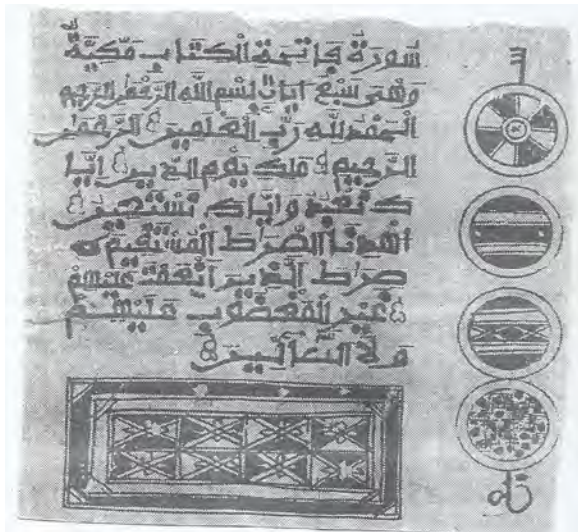 سُورَةُ فَاتِحَةِ الْكِتَابِ مَكِّيَّةٌ
وَهْىَ سَبْعُ ايَاتٍ بِسْمِ اللَّهِ الرَّحْمَٰنِ الرَّحِيمِ
الْحَمْدُ لِلَّهِ رَبِّ الْعَٰلَمِينَ الرَّحْمَٰنِ
الرَّحِيمِ مَلِكِ يَوْمِ الدِّينِ إِيَّا
كَ نَعْبُدُ وَإِيَّاكَ نَسْتَعِينُ
اهْدِنَا الصِّرَاطَ الْمُسْتَقِيمَ
صِرَاطَ الَّذِينَ أَنْعَمْتَ عَلَيْهِمْ
غَيْرِ الْمَغْضُوبِ عَلَيْهِمْ
وَلَا الضَّآلِّينَ